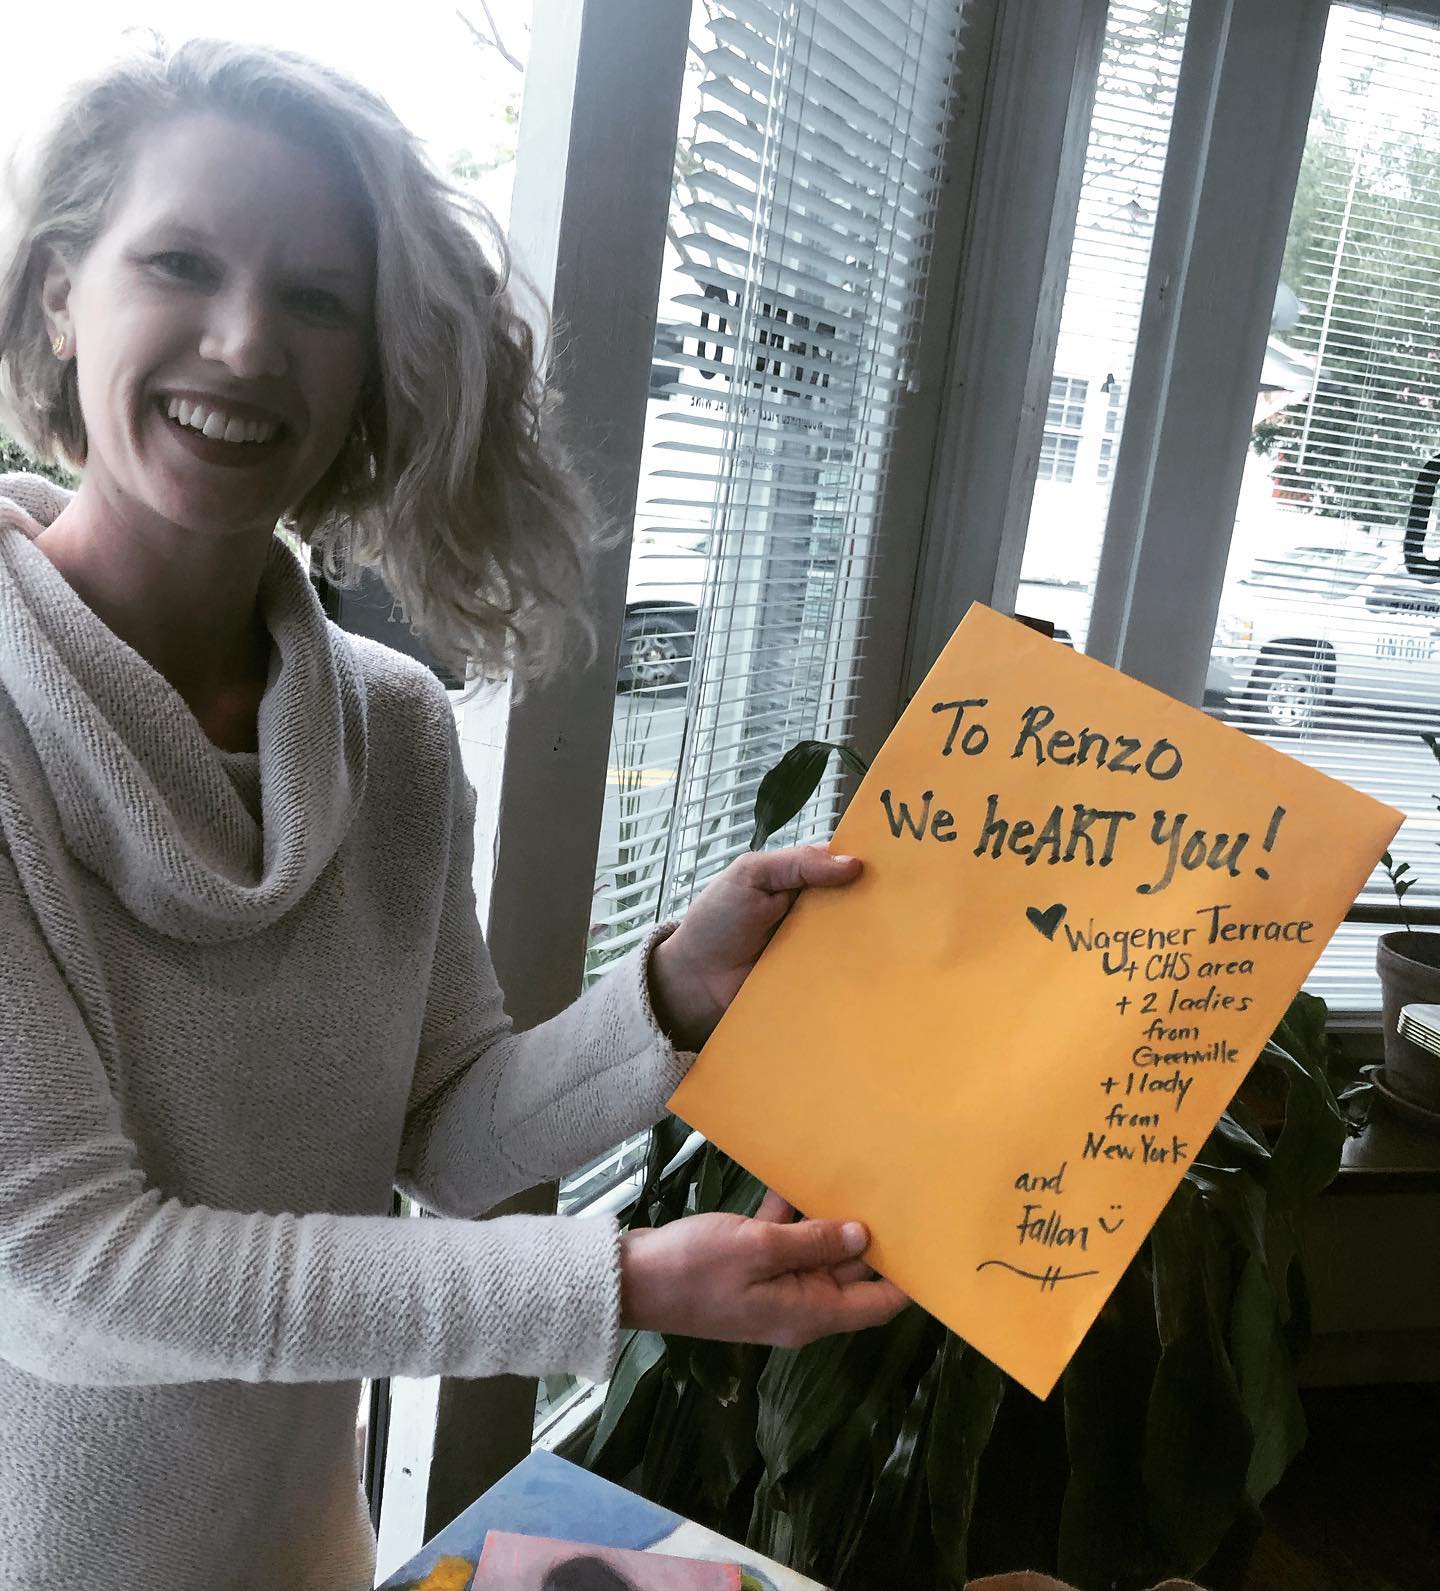 To Renzo
We heART You!
Wagener Terrace
+ CHS area
+ 2 ladies
from
Greenville
+ 1 lady
from
New York
and
Fallon